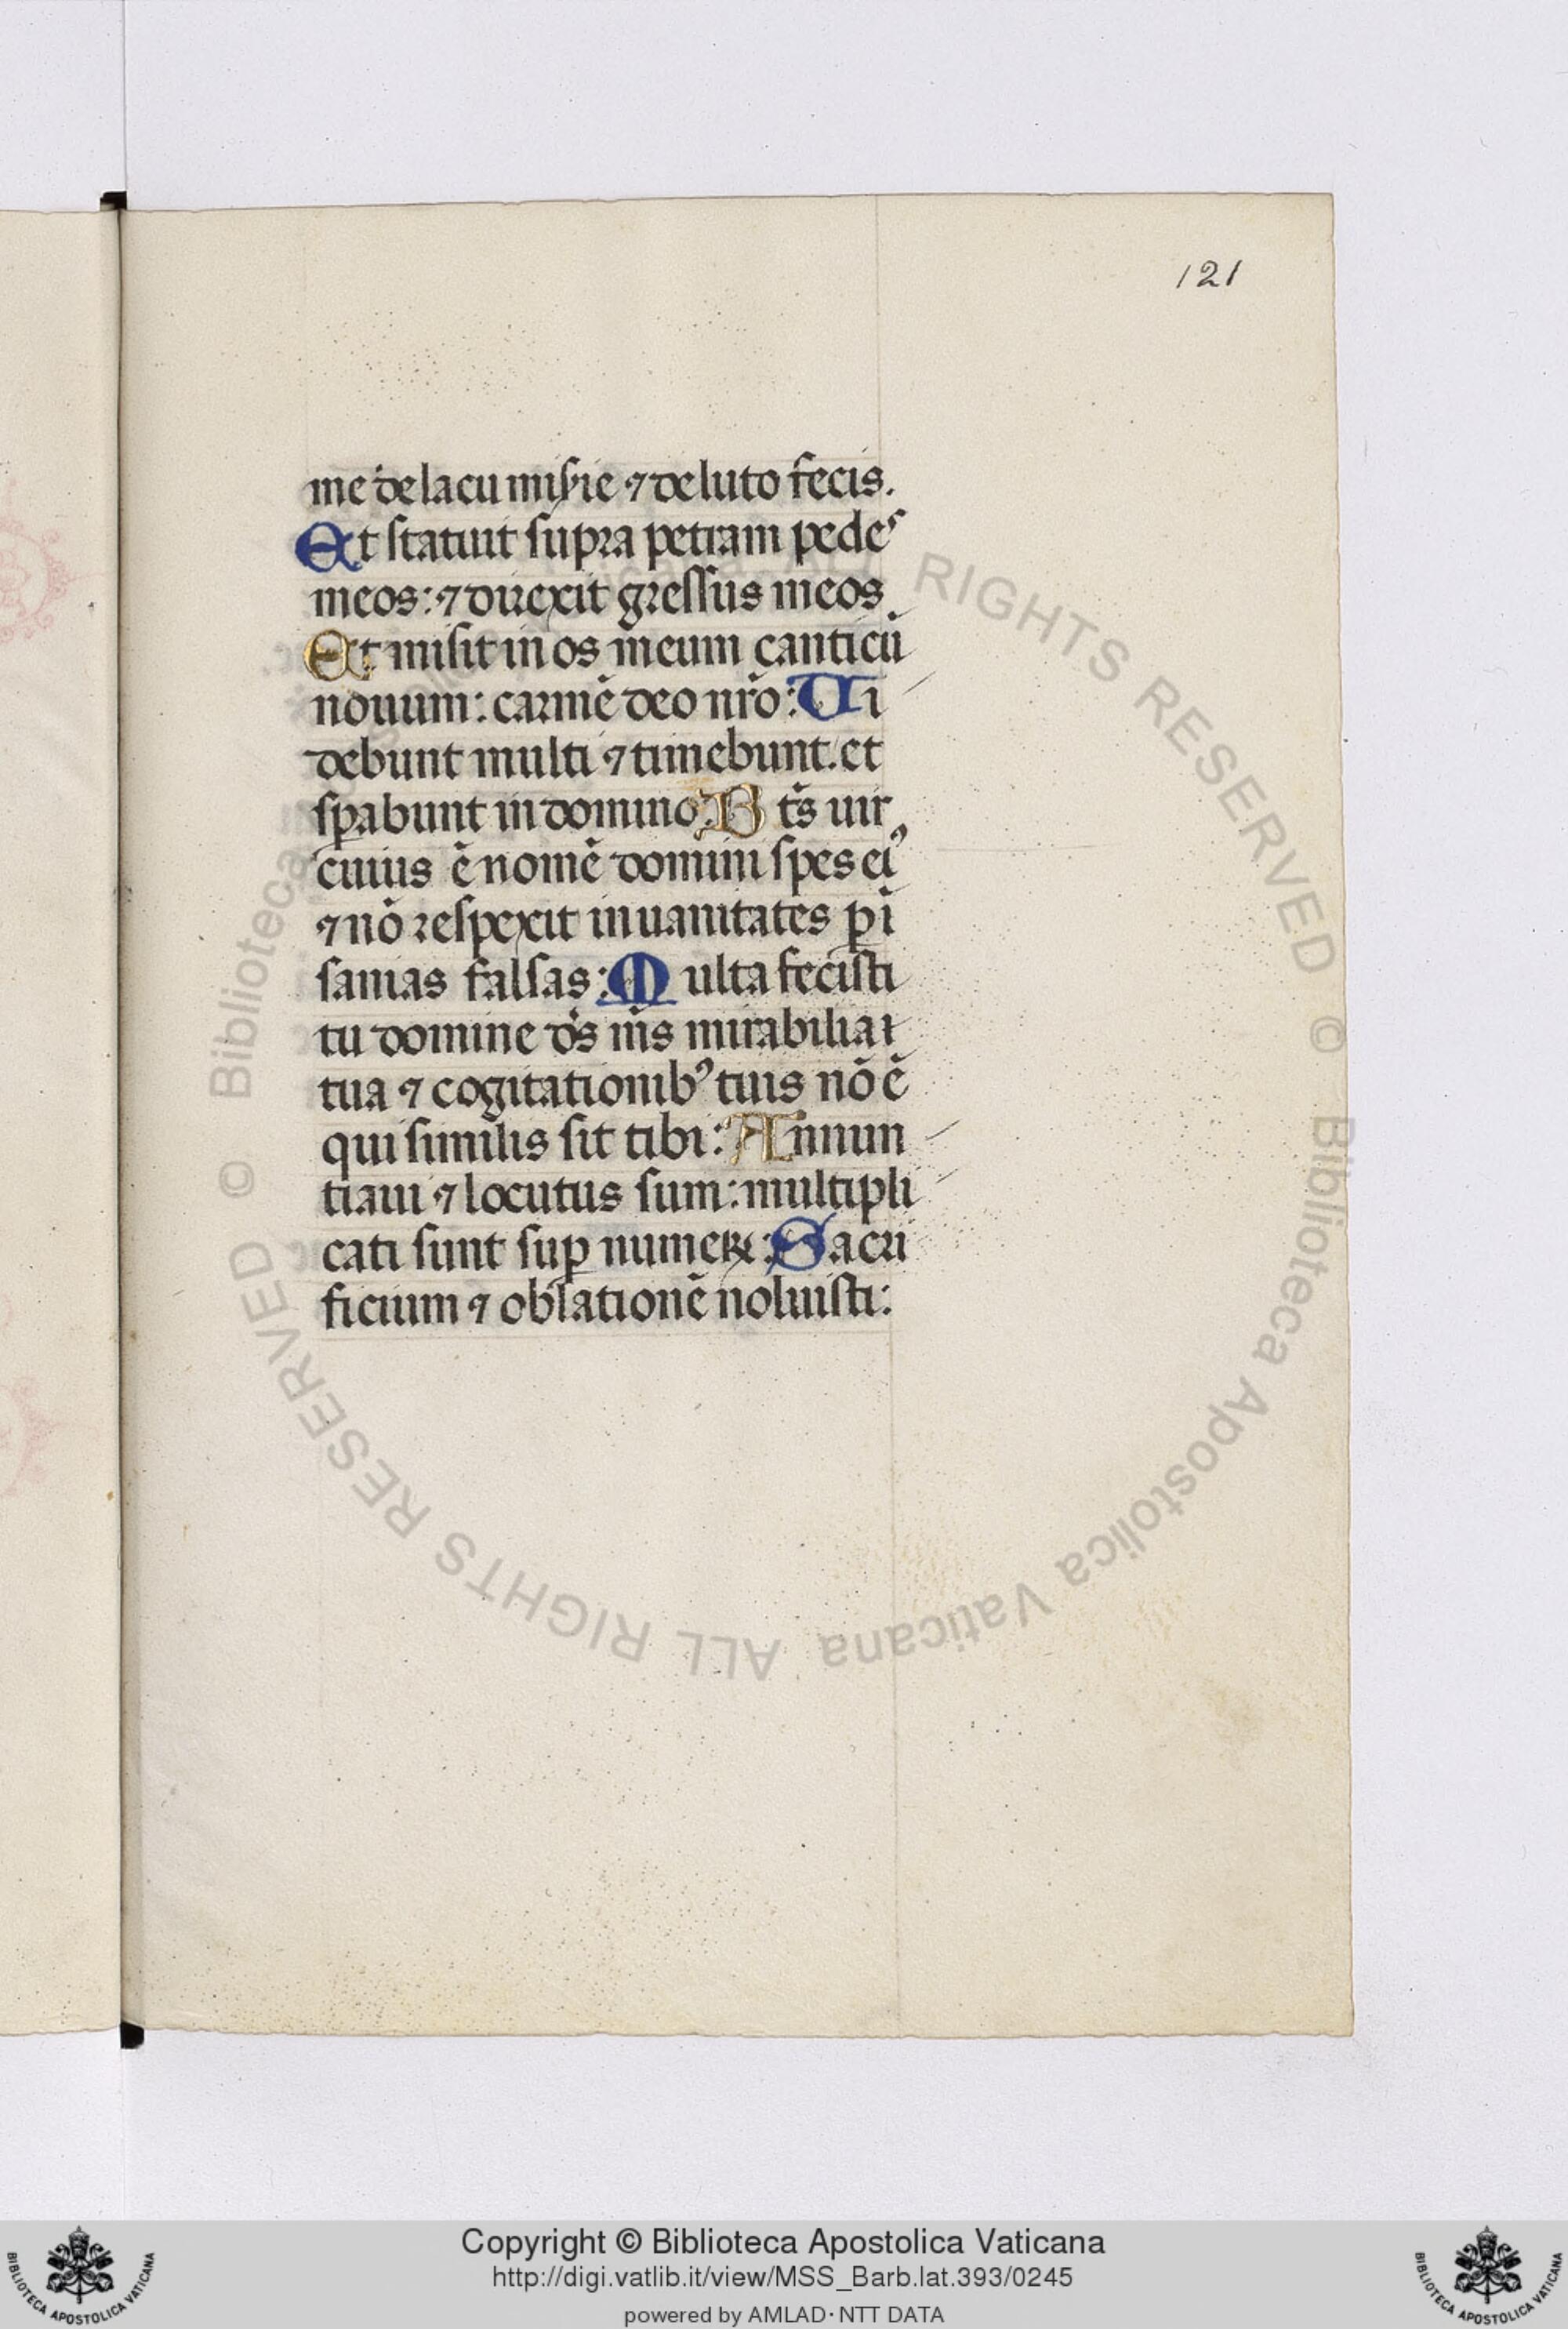 121
me de lacu mis̾ie ⁊ de luto fecis.
Et statuit supra petram pedes
meos: ⁊ direxit gressus meos.
Et misit in os meum canticū
nouum: carmē deo nr̄o: Ui
debunt multi ⁊ timebunt. et
sꝑabunt in domino: B t̄s uir
cuius ē nomē domini spes eiꝰ
⁊ nō respexit in uanitates ⁊ ī
sanias falsas: Multa fecisti
tu domine d̄s m̄s mirabilia
tua ⁊ cogitationibꝰ tuis nō ē
qui similis sit tibi: Annun
tiaui ⁊ locutus sum: multipli
cati sunt suꝑ numeꝝ: Sacri
ficium ⁊ oblationē noluisti:
© Biblioteca Apostolica Vaticana ALL RIGHTS RESERVED
© Biblioteca Apostolica Vaticana ALL RIGHTS RESERVED
Copyright © Biblioteca Apostolica Vaticana
http://digi.vatlib.it/view/MSS_Barb.lat.393/0245
powered by AMLAD·NTT DATA
BIBLIOTECA APOSTOLICA VATICANA
BIBLIOTECA APOSTOLICA VATICANA